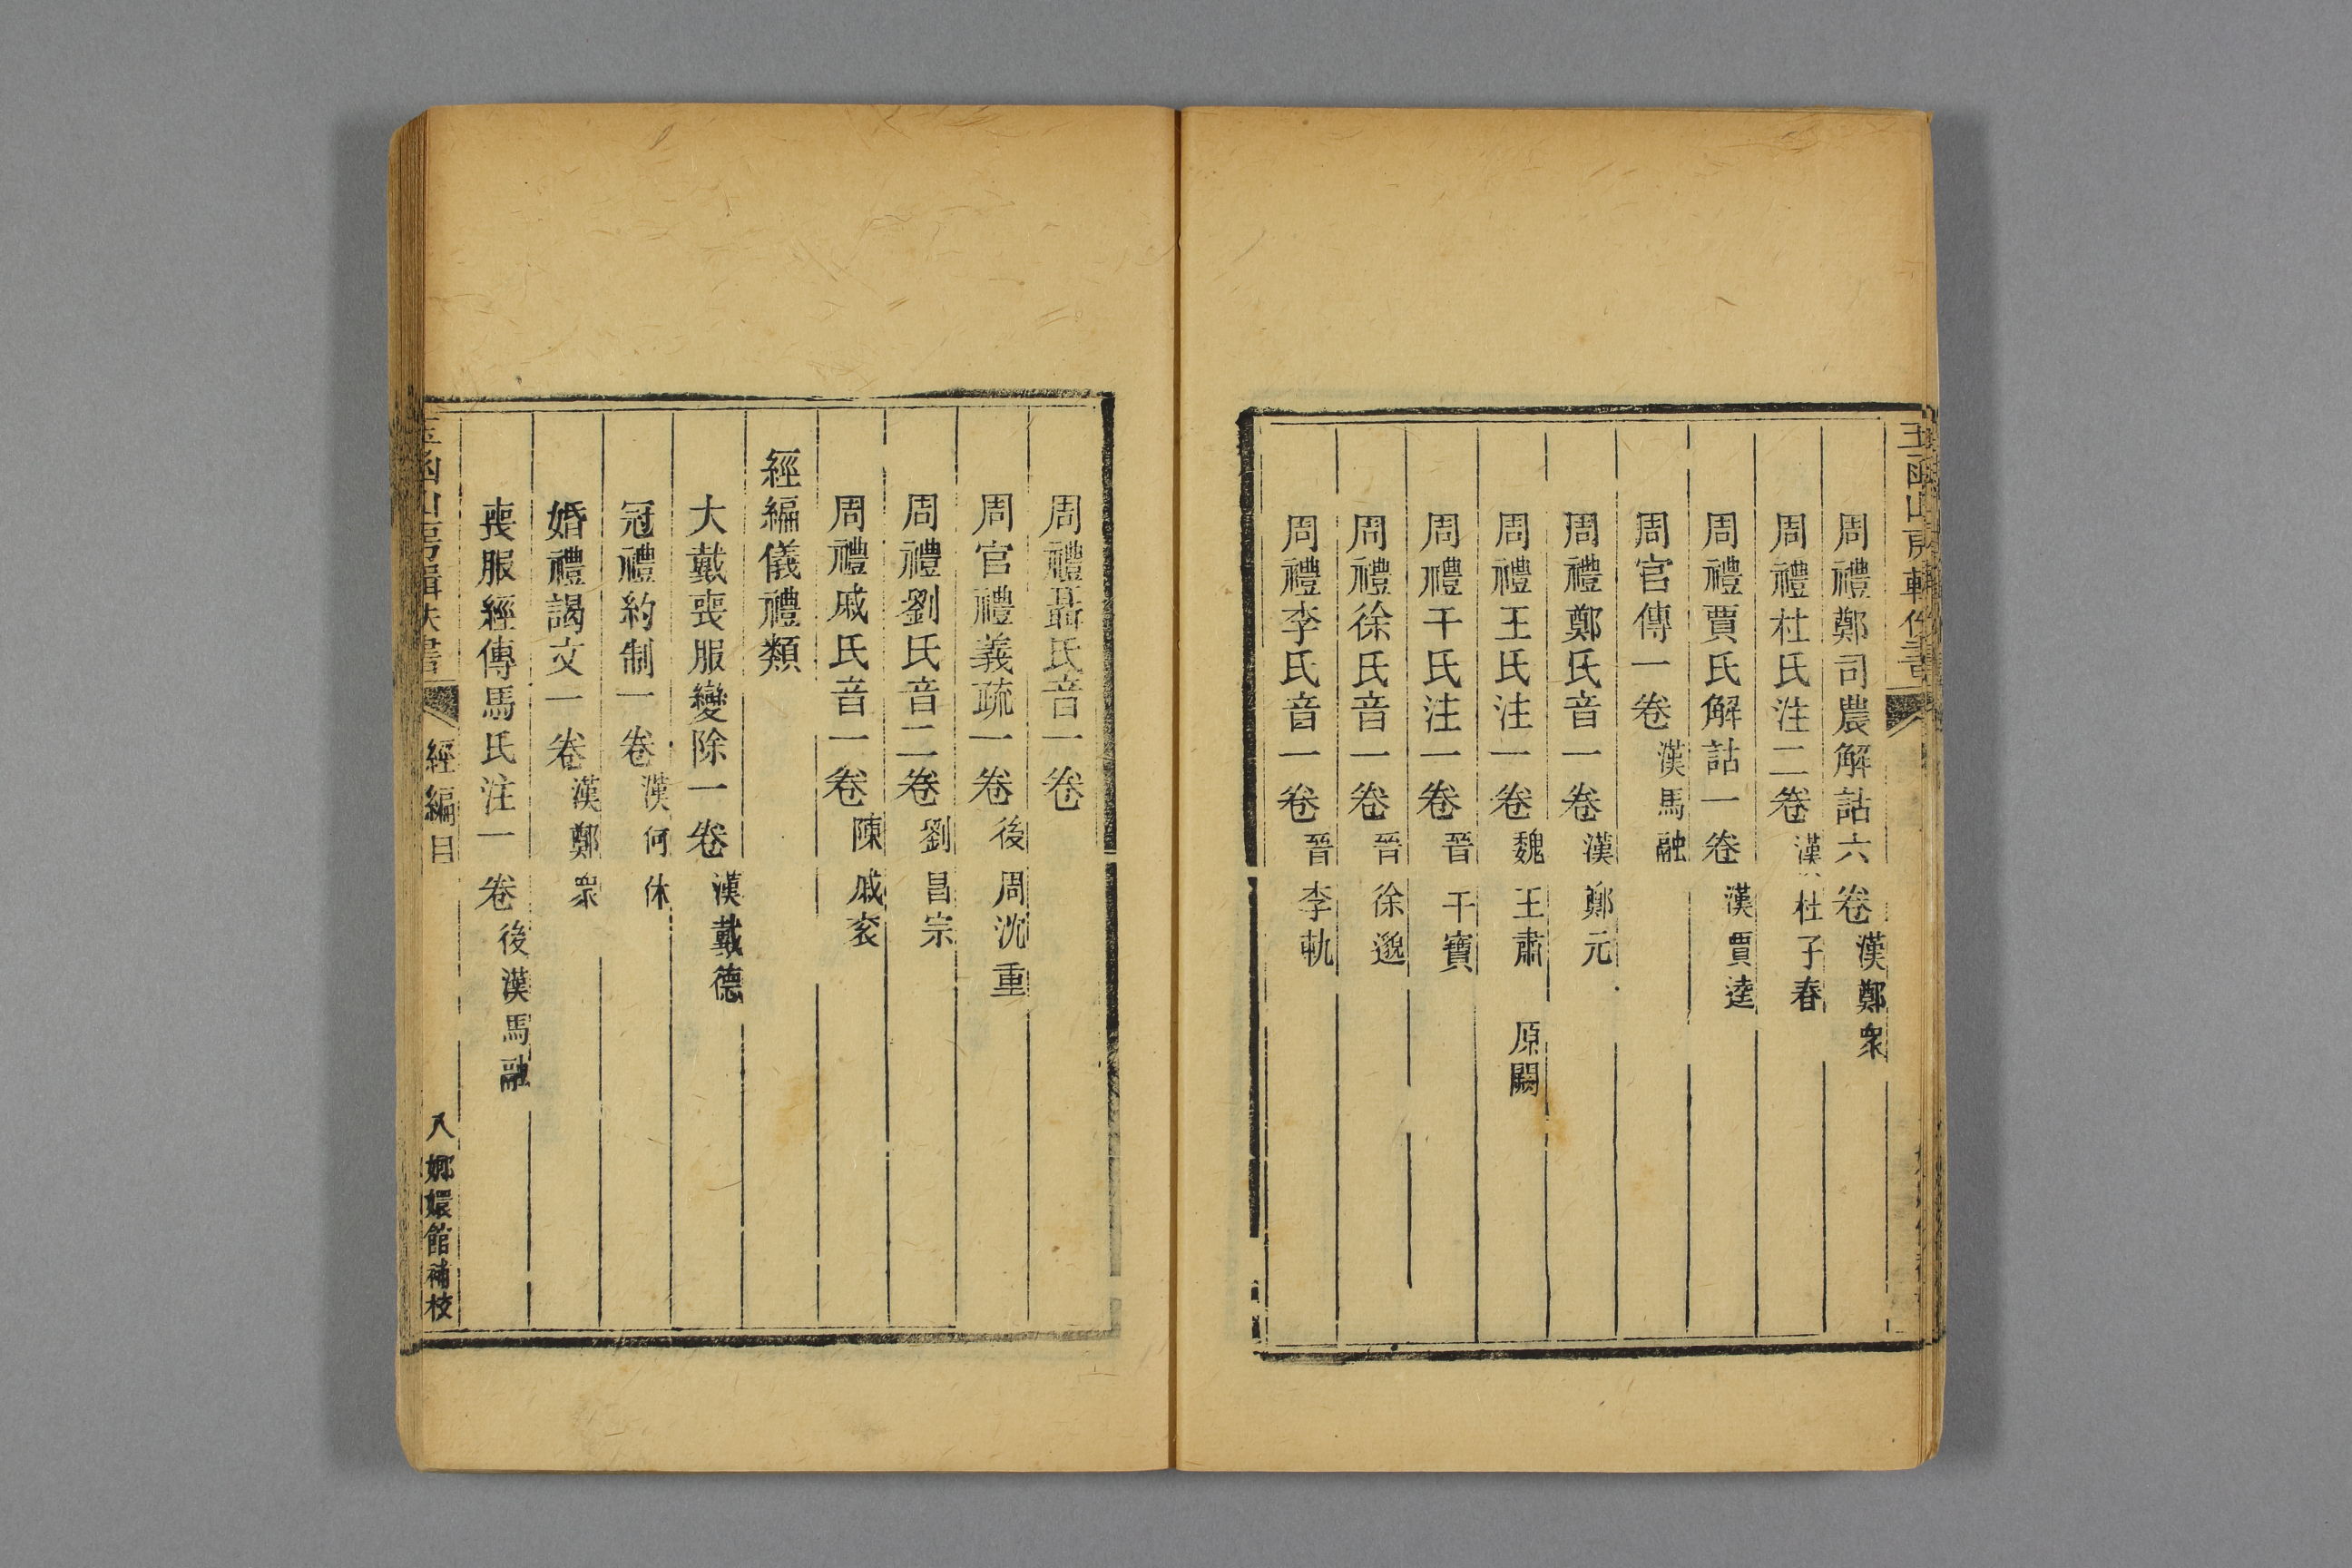 周禮鄭司農解詁六卷漢鄭衆
周禮杜氏注二卷漢杜子春
周禮賈氏解詁一卷漢賈逵
周官傳一卷漢馬融
周禮鄭氏音一卷漢鄭元
周禮王氏注一卷魏王肅 原闕
周禮干氏注一卷晉干寶
周禮徐氏音一卷晉徐邈
周禮李氏音一卷晉李軌
周禮聶氏音一卷
周官禮義疏一卷後周沈重
周禮劉氏音二卷劉昌宗
周禮戚氏音一卷陳戚衮
經編儀禮類
大戴喪服變除一卷漢戴德
冠禮約制一卷漢何休
婚禮謁文一卷漢鄭衆
喪服經傳馬氏注一卷後漢馬融
玉函山房輯佚書 經編目 八 嫏嬛館補校